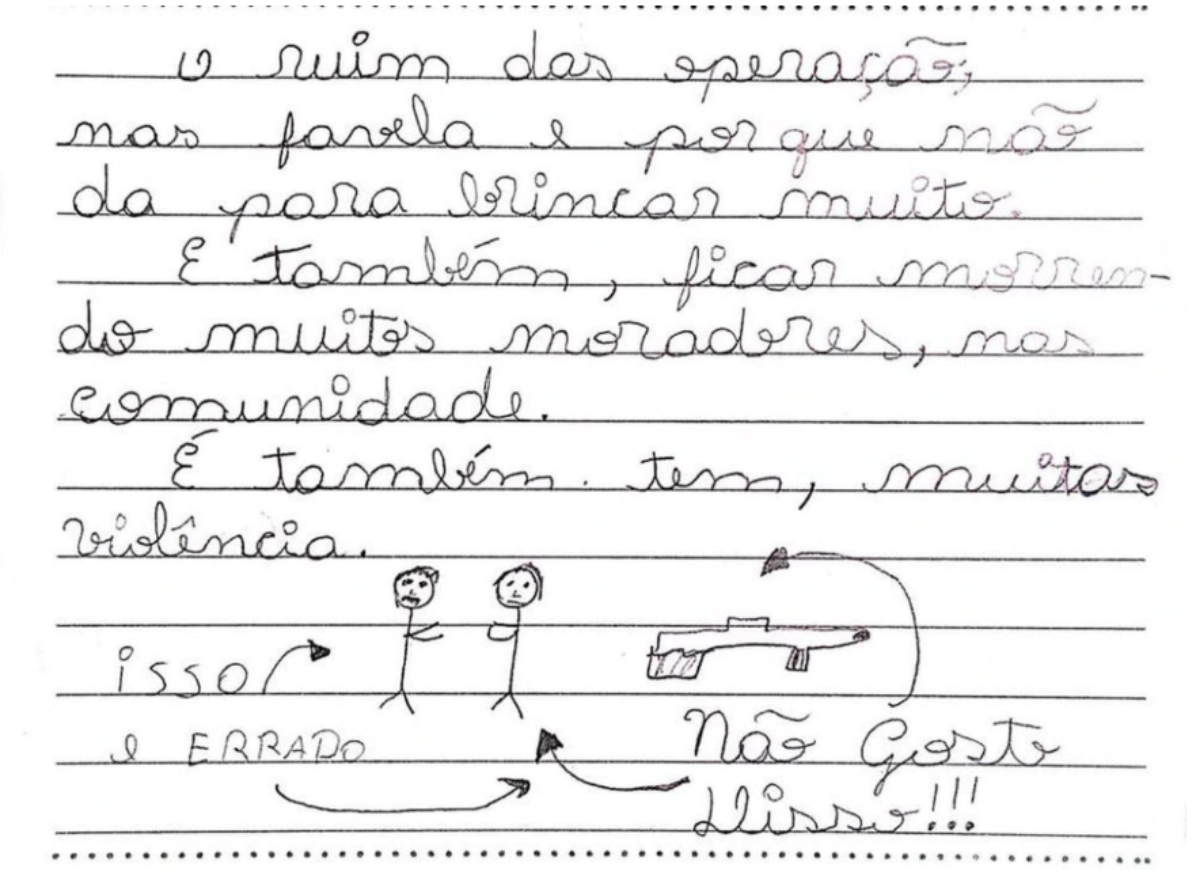 O ruim das operação,
nas favela e por que não
da para brincar muito.
E também, ficar morren-
do muitos moradores, nas
comunidade.
É também. tem, muitas
violência.
isso
e ERRADO
Não Gosto
Disso!!!